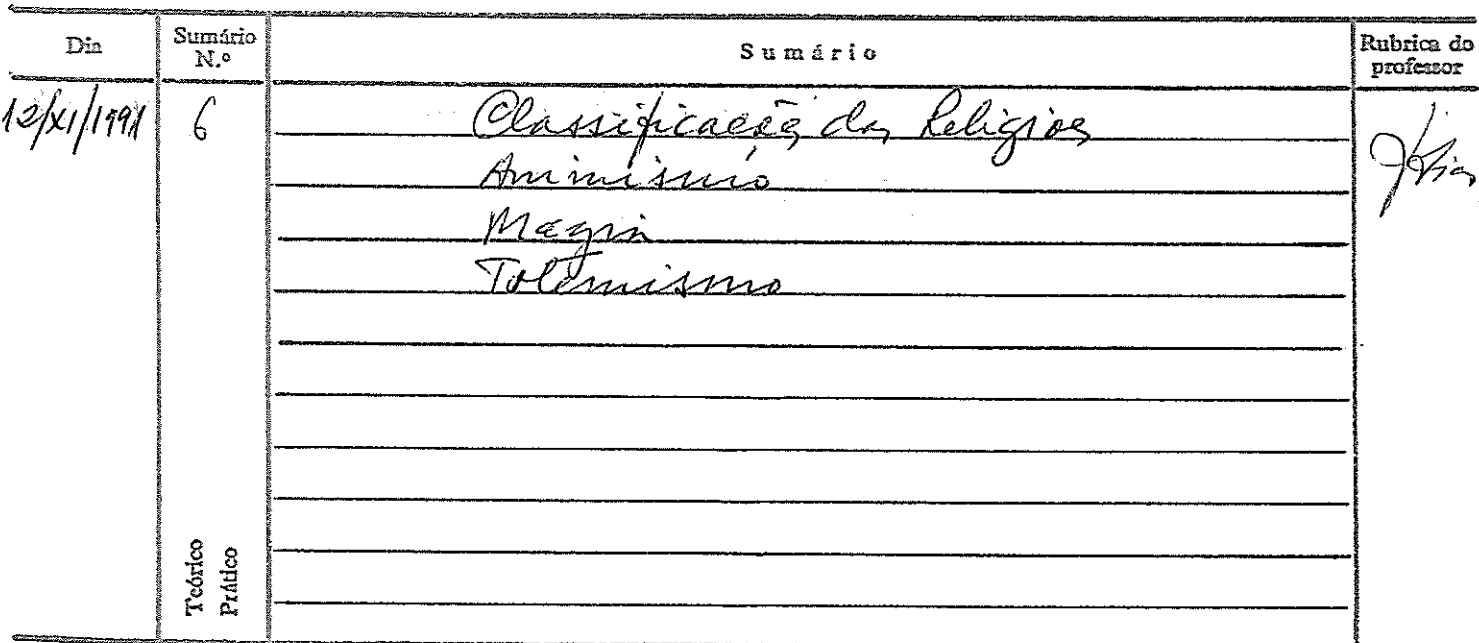 Dia
Sumário N.º
Sumário
Rubrica do professor
12/XI/1991
6
Classificação das Religiões
Animismo
Magia
Totemismo
Teórico
Prático